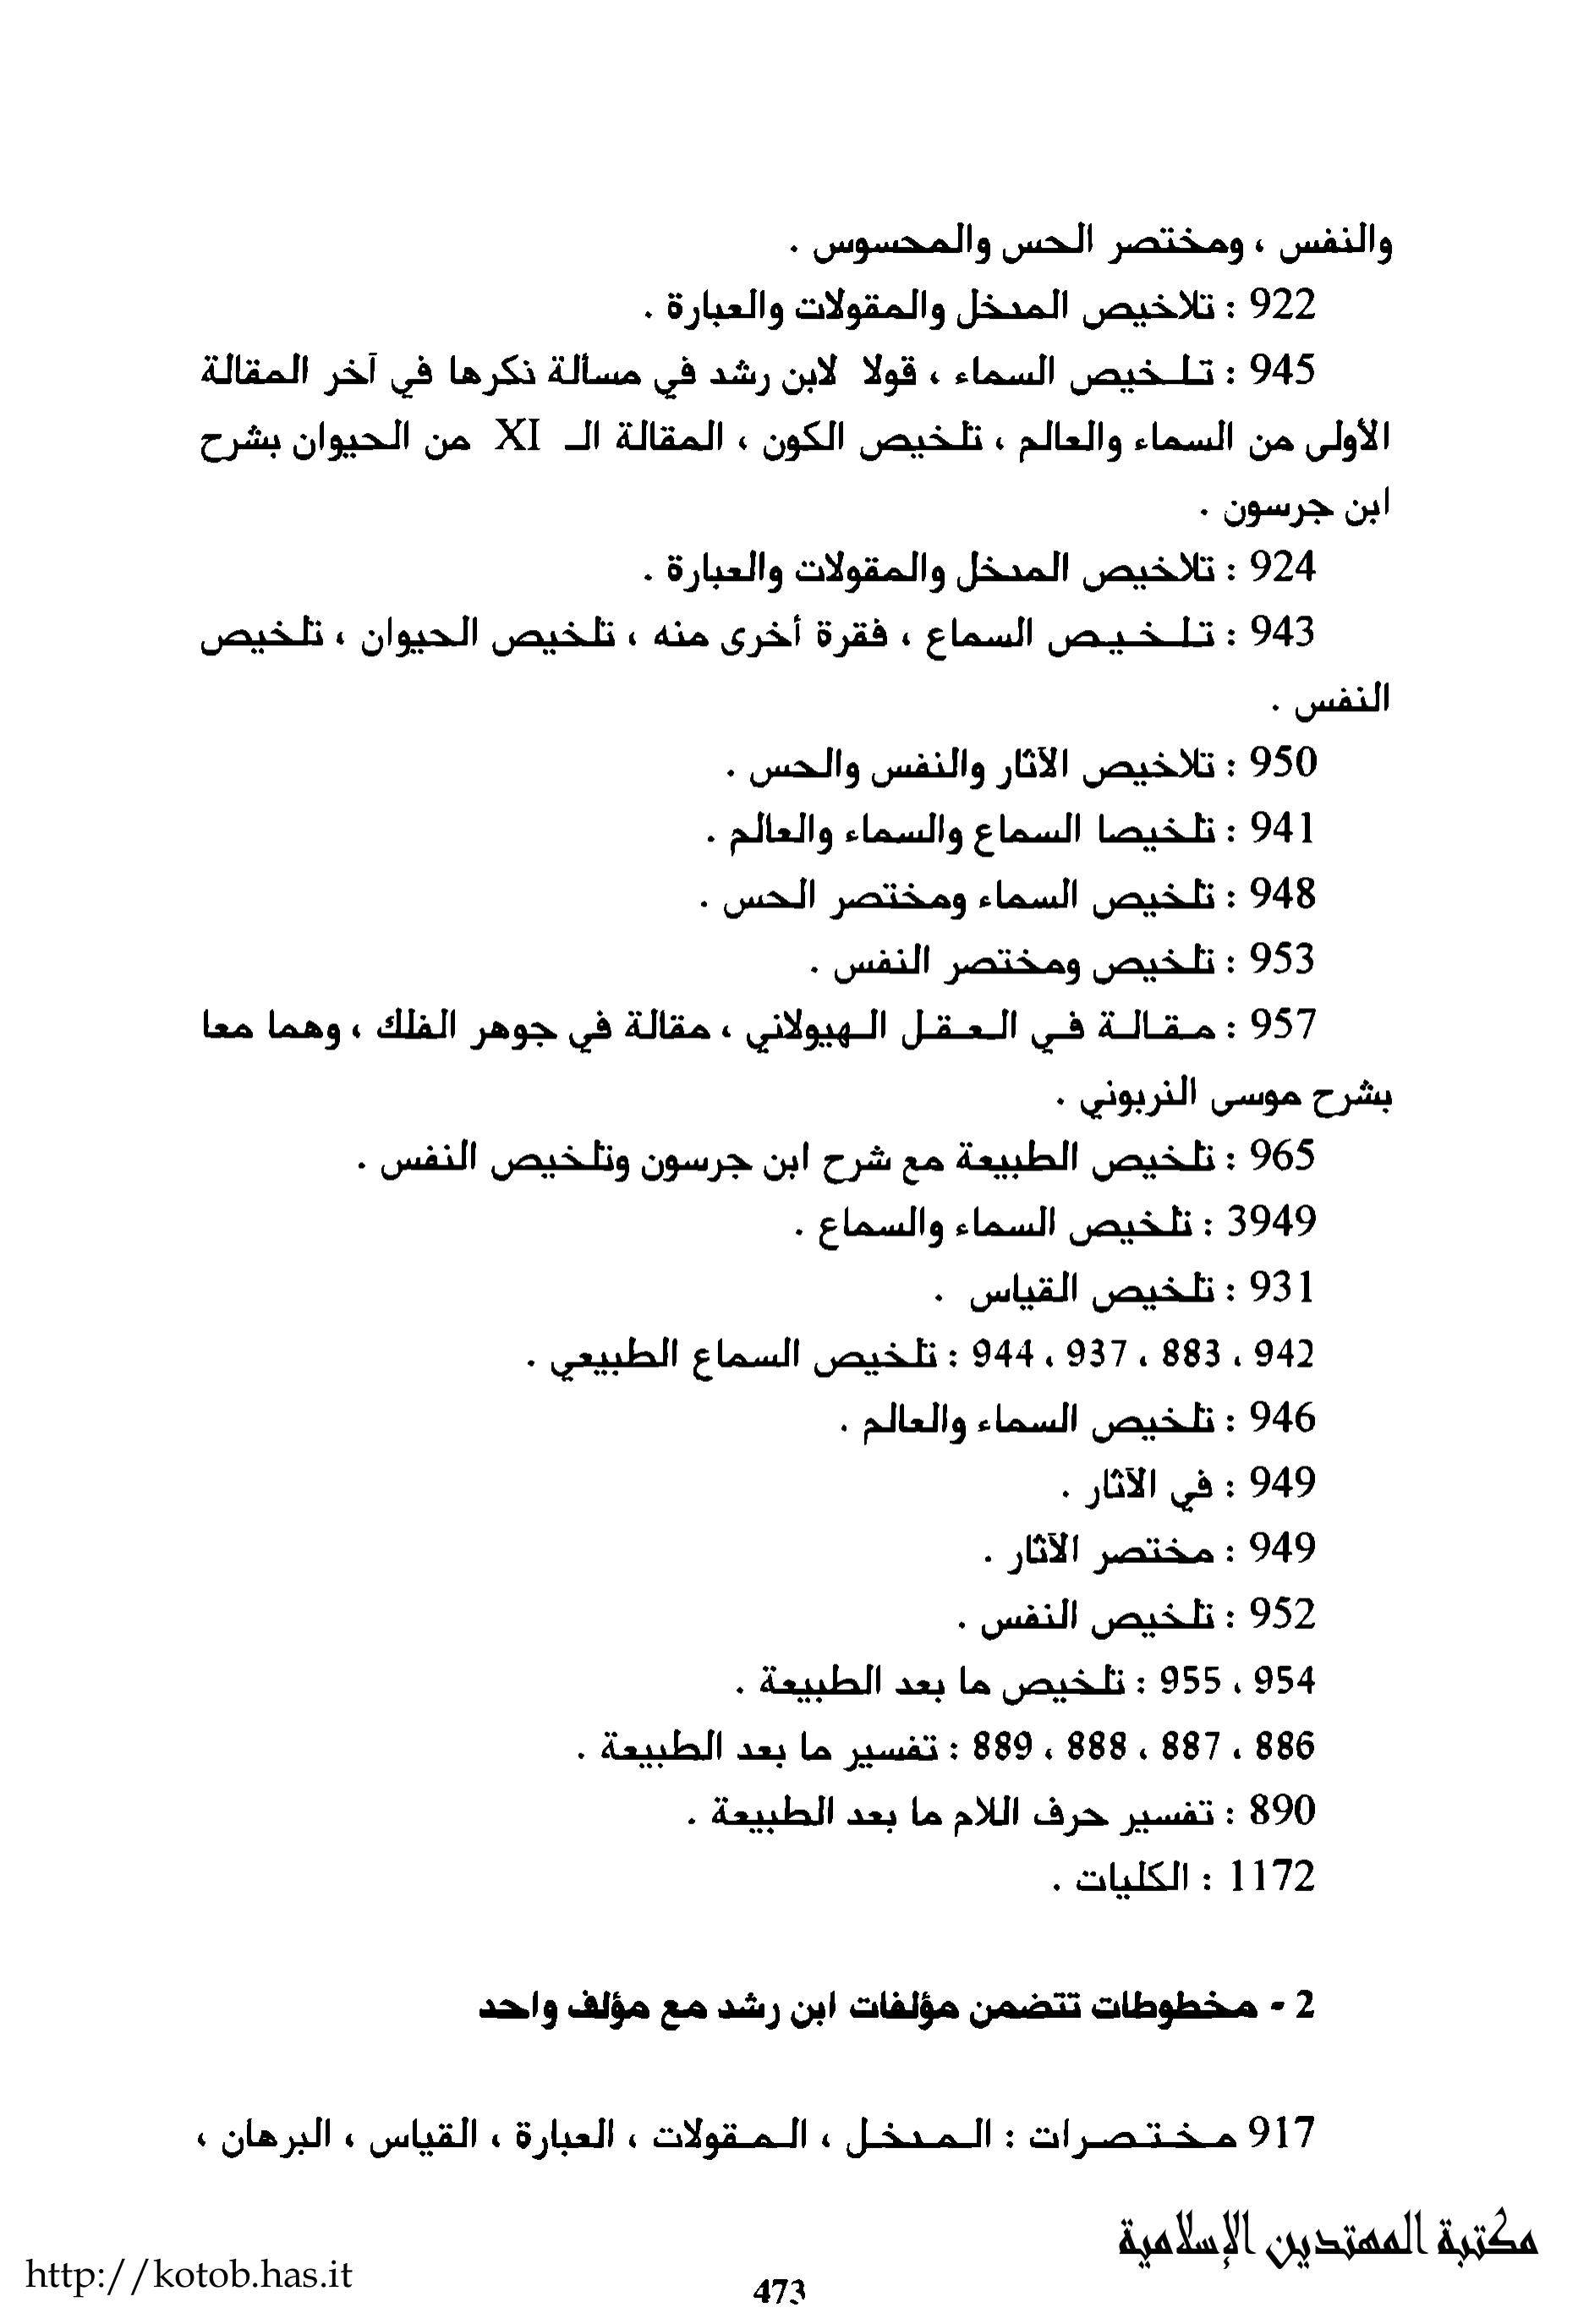 والنفس ، ومختصر الحس والمحسوس .
922 : تلاخيص المدخل والمقولات والعبارة .
945 : تلخيص السماء ، قولا لابن رشد في مسألة نكرها في آخر المقالة
الأولى من السماء والعالم ، تلخيص الكون ، المقالة الـ XI من الحيوان بشرح
ابن جرسون .
924 : تلاخيص المدخل والمقولات والعبارة .
943 : تلخيص السماع ، فقرة أخرى منه ، تلخيص الحيوان ، تلخيص
النفس .
950 : تلاخيص الآثار والنفس والحس .
941 : تلخيصا السماع والسماء والعالم .
948 : تلخيص السماء ومختصر الحس .
953 : تلخيص ومختصر النفس .
957 : مقالة في العقل الهيولاني ، مقالة في جوهر الفلك ، وهما معا
بشرح موسى النربوني .
965 : تلخيص الطبيعة مع شرح ابن جرسون وتلخيص النفس .
3949 : تلخيص السماء والسماع .
931 : تلخيص القياس .
942 ، 883 ، 937 ، 944 : تلخيص السماع الطبيعي .
946 : تلخيص السماء والعالم .
949 : في الآثار .
949 : مختصر الآثار .
952 : تلخيص النفس .
954 ، 955 : تلخيص ما بعد الطبيعة .
886 ، 887 ، 888 ، 889 : تفسير ما بعد الطبيعة .
890 : تفسير حرف اللام ما بعد الطبيعة .
1172 : الكليات .
2 - مخطوطات تتضمن مؤلفات ابن رشد مع مؤلف واحد
917 مختصرات : المدخل ، المقولات ، العبارة ، القياس ، البرهان ،
مكتبة المهتدين الإسلامية
http://kotob.has.it
473